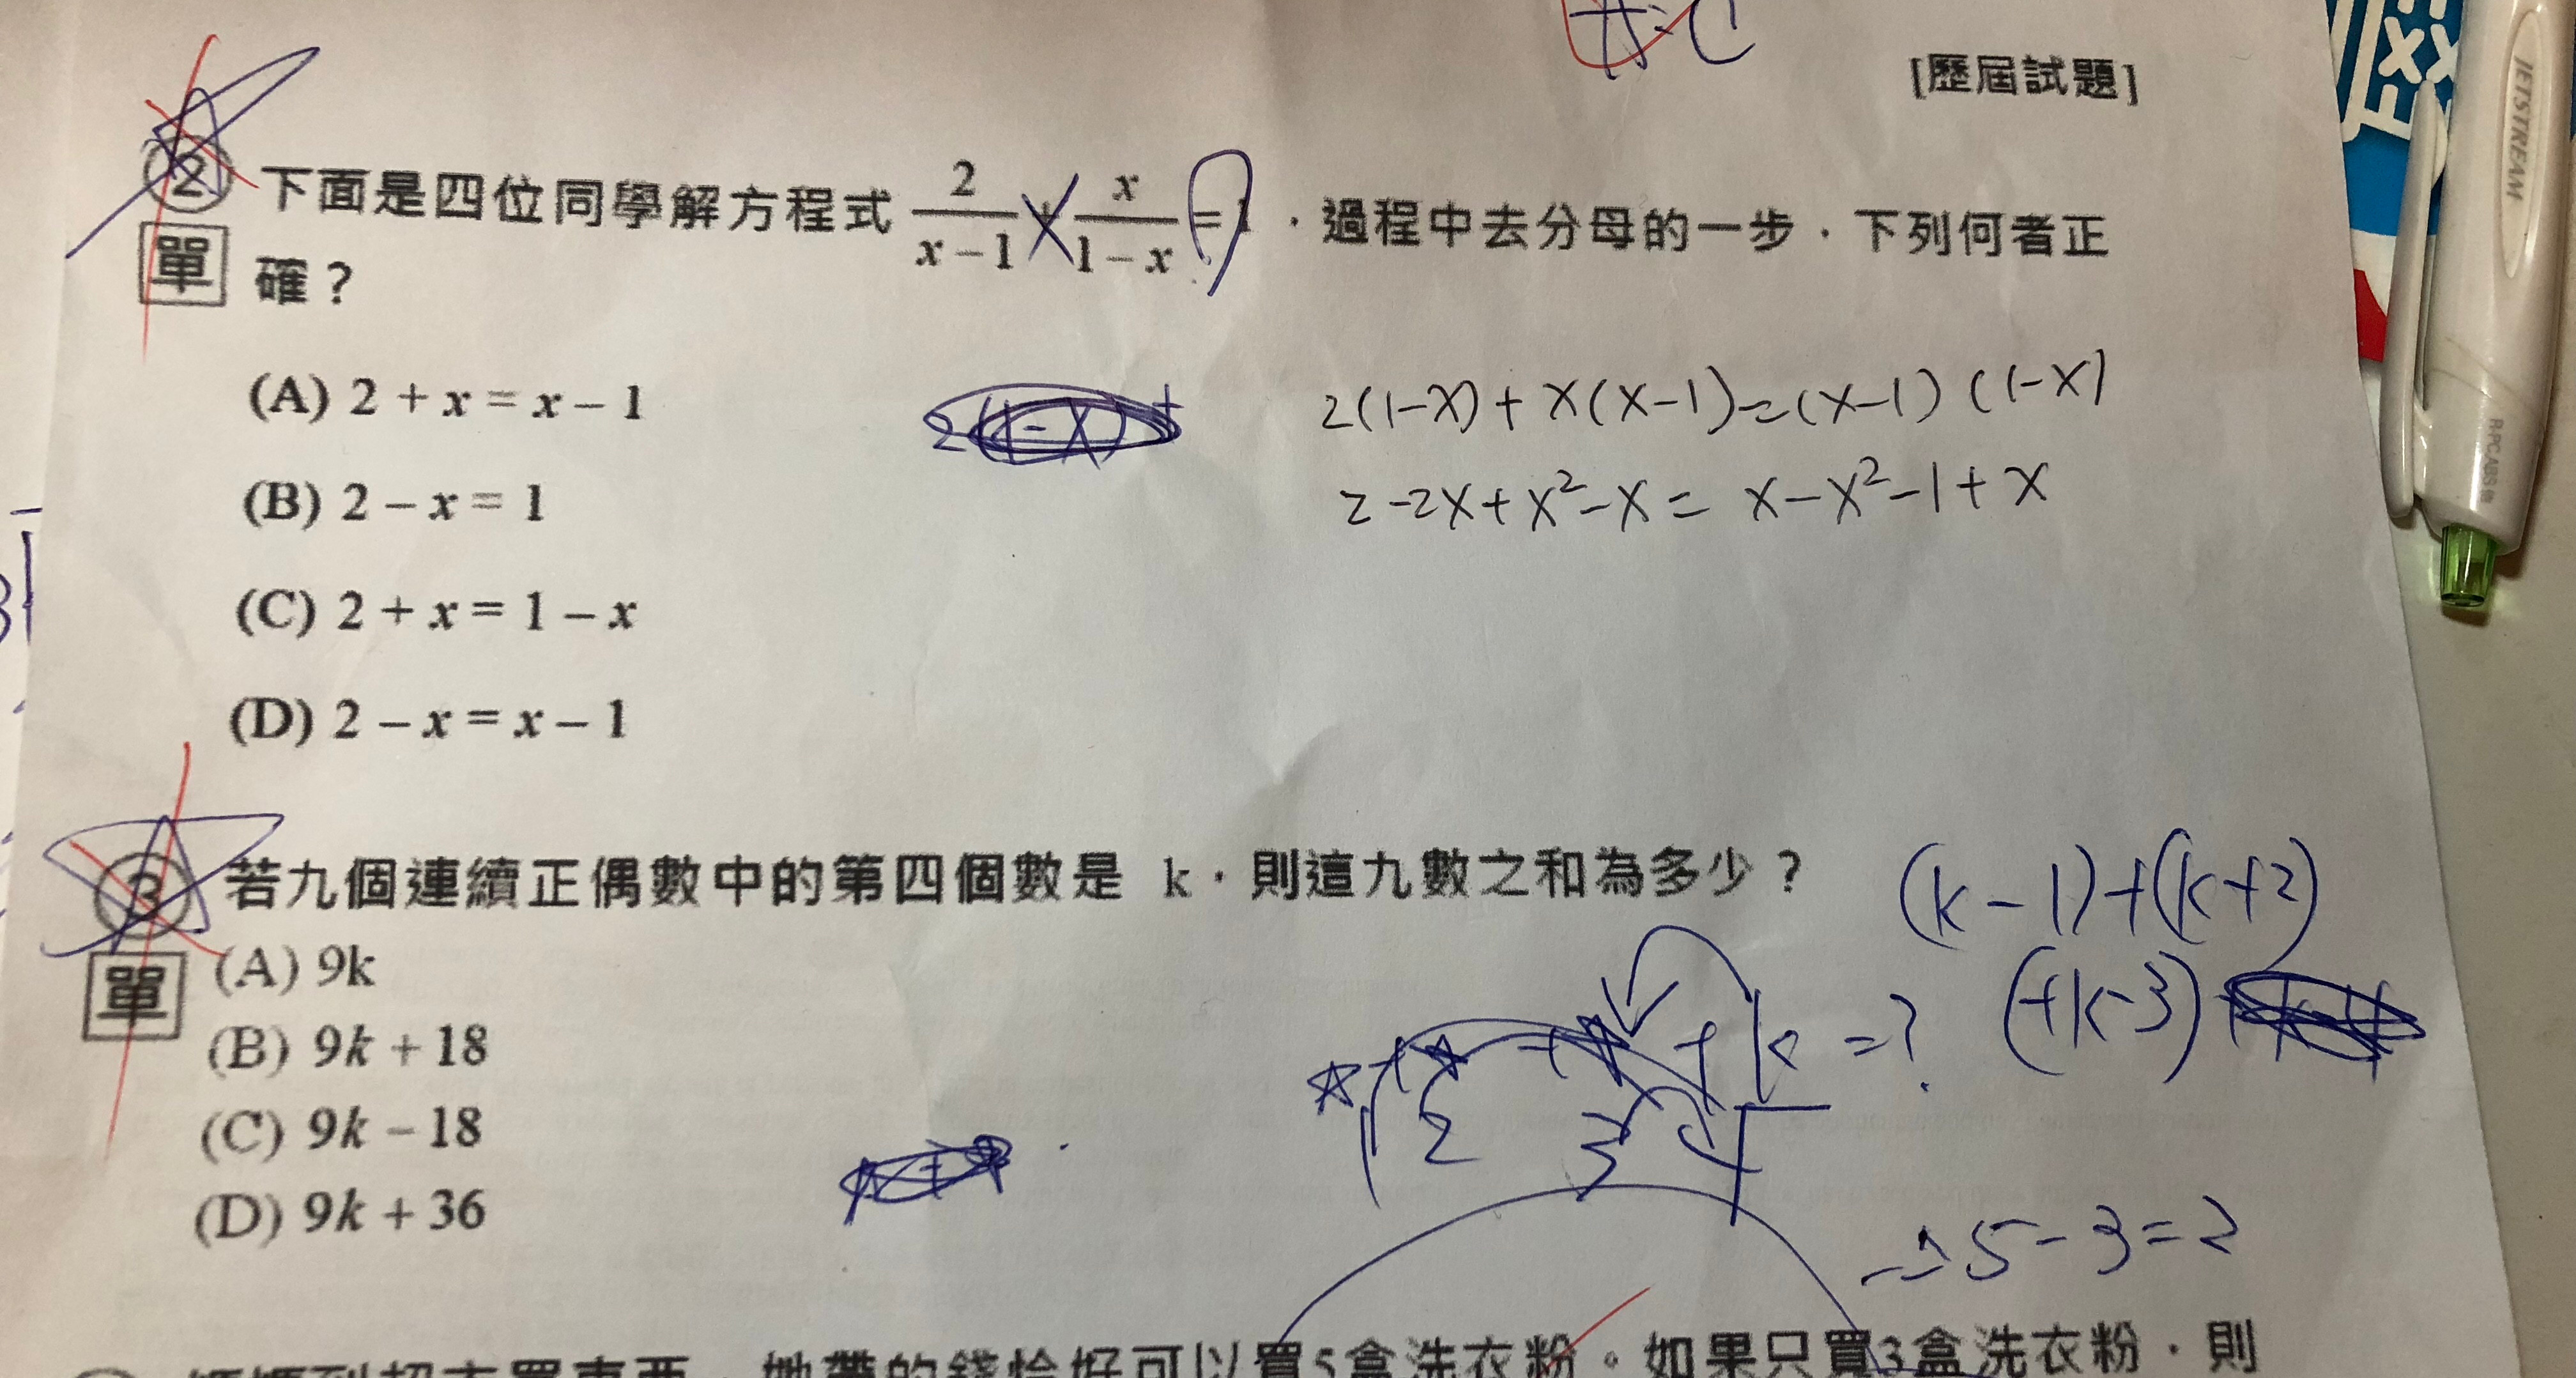 [歷屆試題]
② 下面是四位同學解方程式 2/(x-1) + x/(1-x) = 1，過程中去分母的一步，下列何者正
單 確？
(A) 2 + x = x - 1
2(1-x)+x(x-1)=(x-1)(1-x)
(B) 2 - x = 1
2-2x+x²-x=x-x²-1+x
(C) 2 + x = 1 - x
(D) 2 - x = x - 1
③ 若九個連續正偶數中的第四個數是 k，則這九數之和為多少？
(k-1)+(k+2)
單 (A) 9k
(+k-3)
+k=?
(B) 9k + 18
1 2 3 4
(C) 9k - 18
(D) 9k + 36
5-3=2
她帶的錢恰好可以買5盒洗衣粉。如果只買3盒洗衣粉，則
JETSTREAM